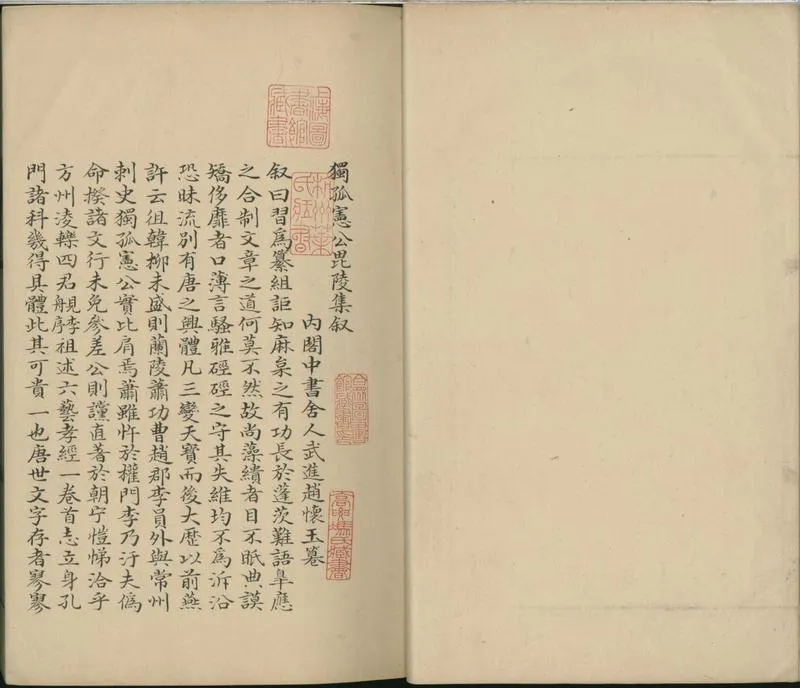 獨孤憲公毘陵集叙
內閣中書舍人武進趙懷玉篹
叙曰習爲纂組詎知麻枲之有功長於蓬茨難語皐應
之合制文章之道何莫不然故尚藻繢者目不眂典謨
矯侈靡者口薄言騷雅硜硜之守其失維均不爲泝沿
恐昧流別有唐之興體凡三變天寶而後大歷以前燕
許云徂韓柳未盛則蘭陵蕭功曹趙郡李員外與常州
刺史獨孤憲公實比肩焉蕭雖忤於權門李乃汙夫僞
命揆諸文行未免參差公則讜直著於朝宁愷悌洽乎
方州淩轢四君覙序李祖述六藝孝經一卷首志立身孔
門諸科幾得具體此其可貴一也唐世文字存者寥寥
上海圖書館藏書
高㘅馮氏藏書